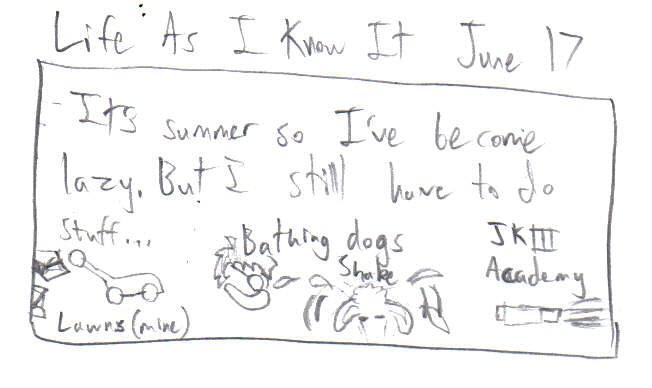 Life As I Know It June 17
-It's summer so I've become
lazy. But I still have to do
stuff...
Bathing dogs
Shake
JKIII
Academy
Lawns (mine)